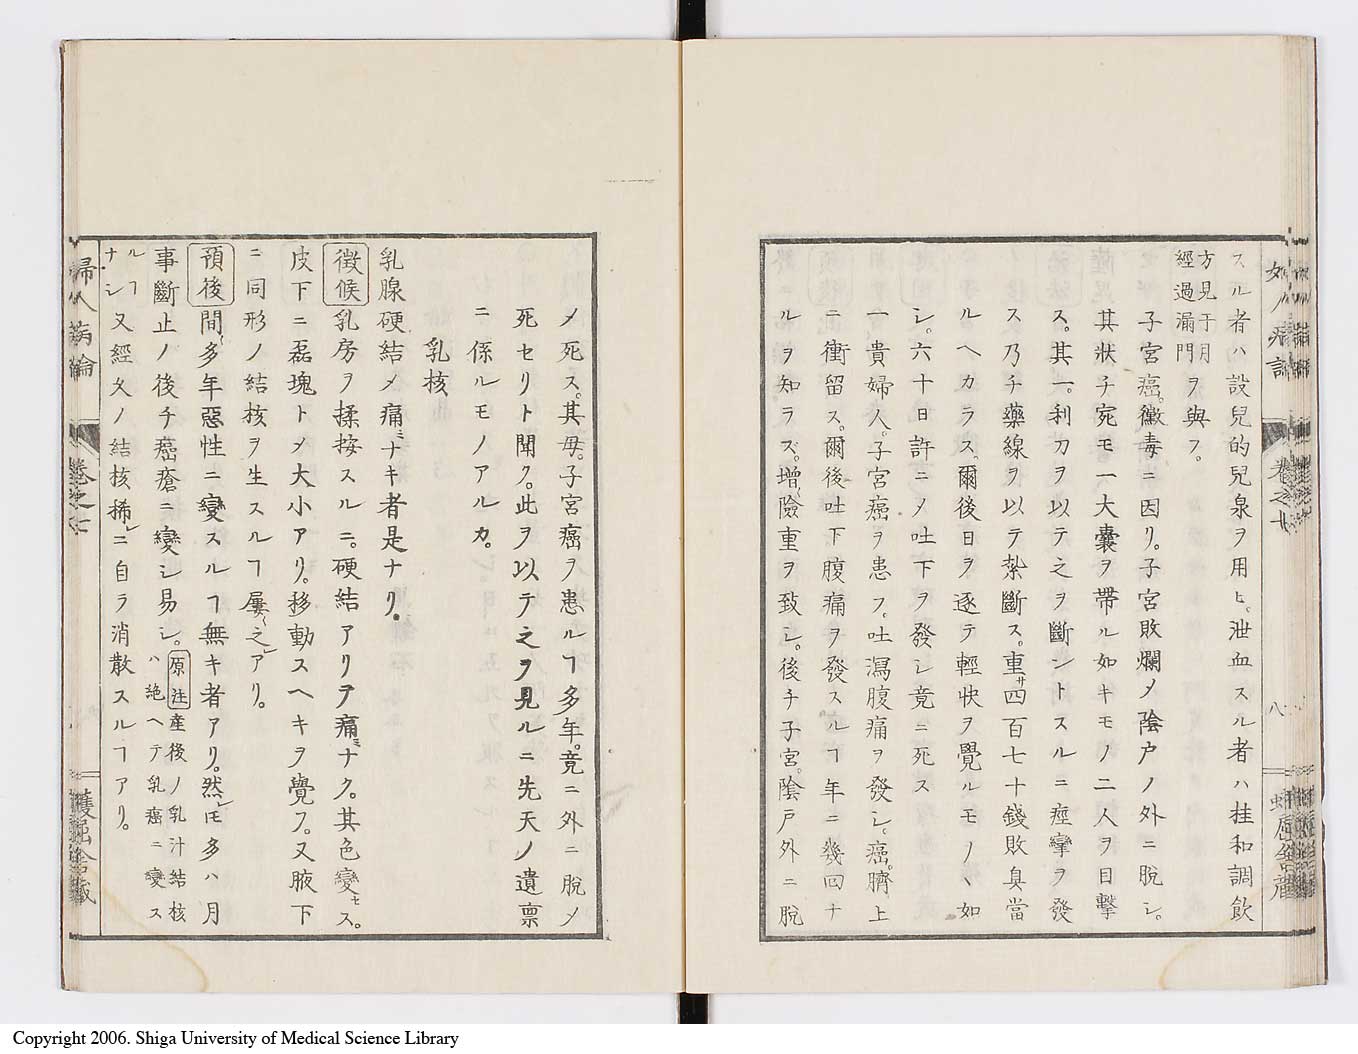 スル者ハ設兒的兒泉ヲ用ヒ。泄血スル者ハ桂和調飲
方見于月
經過漏門
ヲ與フ。
子宮癌。黴毒ニ因リ。子宮敗爛〆陰户ノ外ニ脱シ。
其狀チ宛モ一大囊ヲ帶ル如キモノ二人ヲ目擊
ス。其一。利刀ヲ以テ之ヲ斷ントスルニ痙攣ヲ發
ス乃チ藥線ヲ以テ紮斷ス。重サ四百七十錢敗臭當
ルヘカラス。爾後日ヲ逐テ輕快ヲ覺ルモノヽ如
シ。六十日許ニ〆吐下ヲ發シ竟ニ死ス
一貴婦人。子宮癌ヲ患フ。吐瀉腹痛ヲ發シ。癌。臍上
ニ衝留ス。爾後吐下腹痛ヲ發スルヿ年ニ幾回ナ
ルヲ知ラス。增險重ヲ致シ。後チ子宮。陰戸外ニ脱
八
〆死ス。其母。子宮癌ヲ患ルヿ多年。竟ニ外ニ脱〆
死セリト聞ク。此ヲ以テ之ヲ見ルニ先天ノ遺禀
ニ係ルモノアルカ。
乳核
乳腺硬結〆痛ミナキ者是ナリ。
徴候 乳房ヲ揉按スルニ。硬結アリヲ痛ミナク。其色變セス。
皮下ニ磊塊ト〆大小アリ。移動スヘキヲ覺フ。又腋下
ニ同形ノ結核ヲ生スルヿ屢之アリ。
預後 間多年惡性ニ變スルヿ無キ者アリ。然レ𪜈多ハ月
事斷止ノ後チ癌瘡ニ變シ易シ。
原注 産後ノ乳汁結核
ハ絶ヘテ乳癌ニ變ス
ルヿ
ナシ
又經久ノ結核稀レニ自ラ消散スルヿアリ。
婦人病論
卷之七